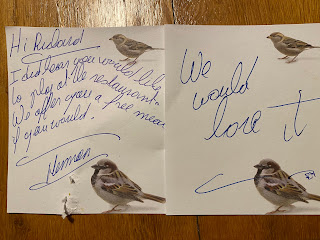 Hi Richard
I did hear you would like
to play at the restaurant.
We offer you a free meal
if you would.
Herman
We
would
love it